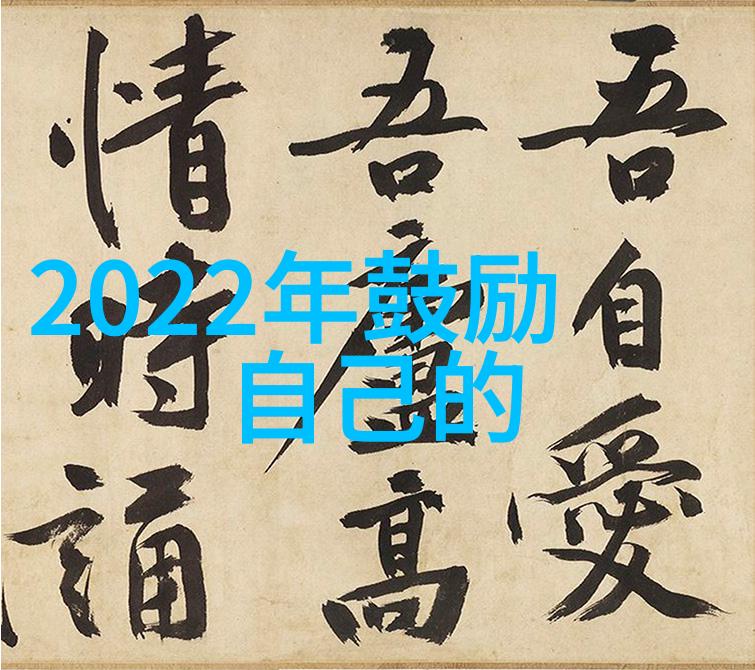 吾自愛
吾廬高
情時誦
2022年鼓励
自己的